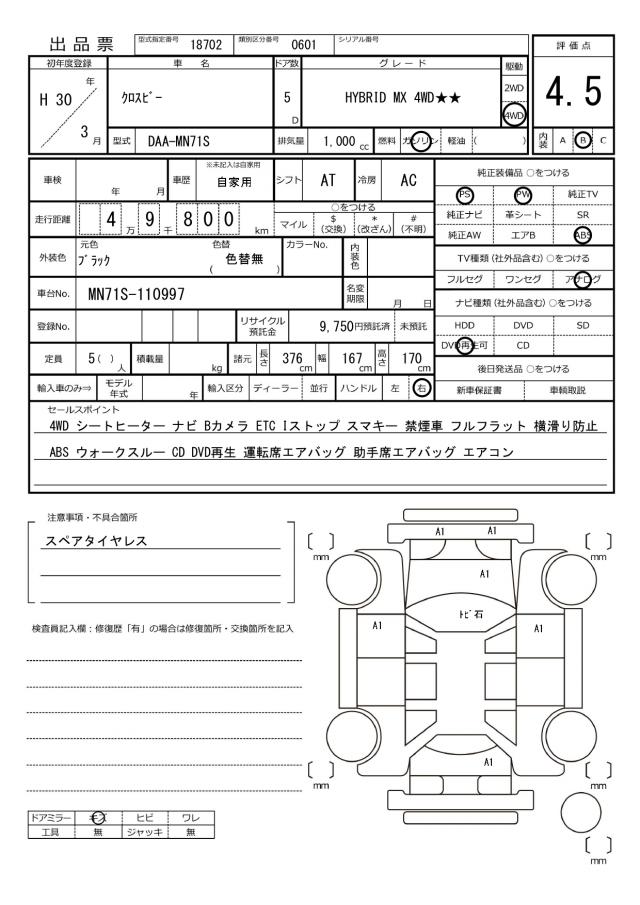 出品票 型式指定番号 18702 類別区分番号 0601 シリアル番号
初年度登録 車名 ドア数 グレード 駆動 評価点
H 30 年 3 月 クロスビー 5 D HYBRID MX 4WD★★ 2WD 4WD 4.5
型式 DAA-MN71S 排気量 1,000 cc 燃料 ガソリン 軽油 ( ) 内装 A B C
車検 年 月 車歴 ※未記入は自家用 自家用 シフト AT 冷房 AC
走行距離 4 万 9 千 8 0 0 km ○をつける マイル $ (交換) * (改ざん) # (不明)
外装色 元色 ブラック 色替 ( 色替無 ) カラーNo. 内装色
車台No. MN71S-110997 名変期限 月 日
登録No. リサイクル預託金 9,750円預託済 未預託
定員 5 ( ) 人 積載量 kg 諸元 長さ 376 cm 幅 167 cm 高さ 170 cm
輸入車のみ⇒ モデル年式 年 輸入区分 ディーラー 並行 ハンドル 左 右
純正装備品 ○をつける
PS PW 純正TV
純正ナビ 革シート SR
純正AW エアB ABS
TV種類(社外品含む) ○をつける
フルセグ ワンセグ アナログ
ナビ種類(社外品含む) ○をつける
HDD DVD SD
DVD再生可 CD
後日発送品 ○をつける
新車保証書 車輌取説
セールスポイント
4WD シートヒーター ナビ Bカメラ ETC Iストップ スマキー 禁煙車 フルフラット 横滑り防止
ABS ウォークスルー CD DVD再生 運転席エアバッグ 助手席エアバッグ エアコン
注意事項・不具合箇所
スペアタイヤレス
検査員記入欄：修復歴「有」の場合は修復箇所・交換箇所を記入
ドアミラー キズ ヒビ ワレ
工具 無 ジャッキ 無
A1 A1
mm mm
A1
トビ石
A1 A1
A1
mm mm
mm